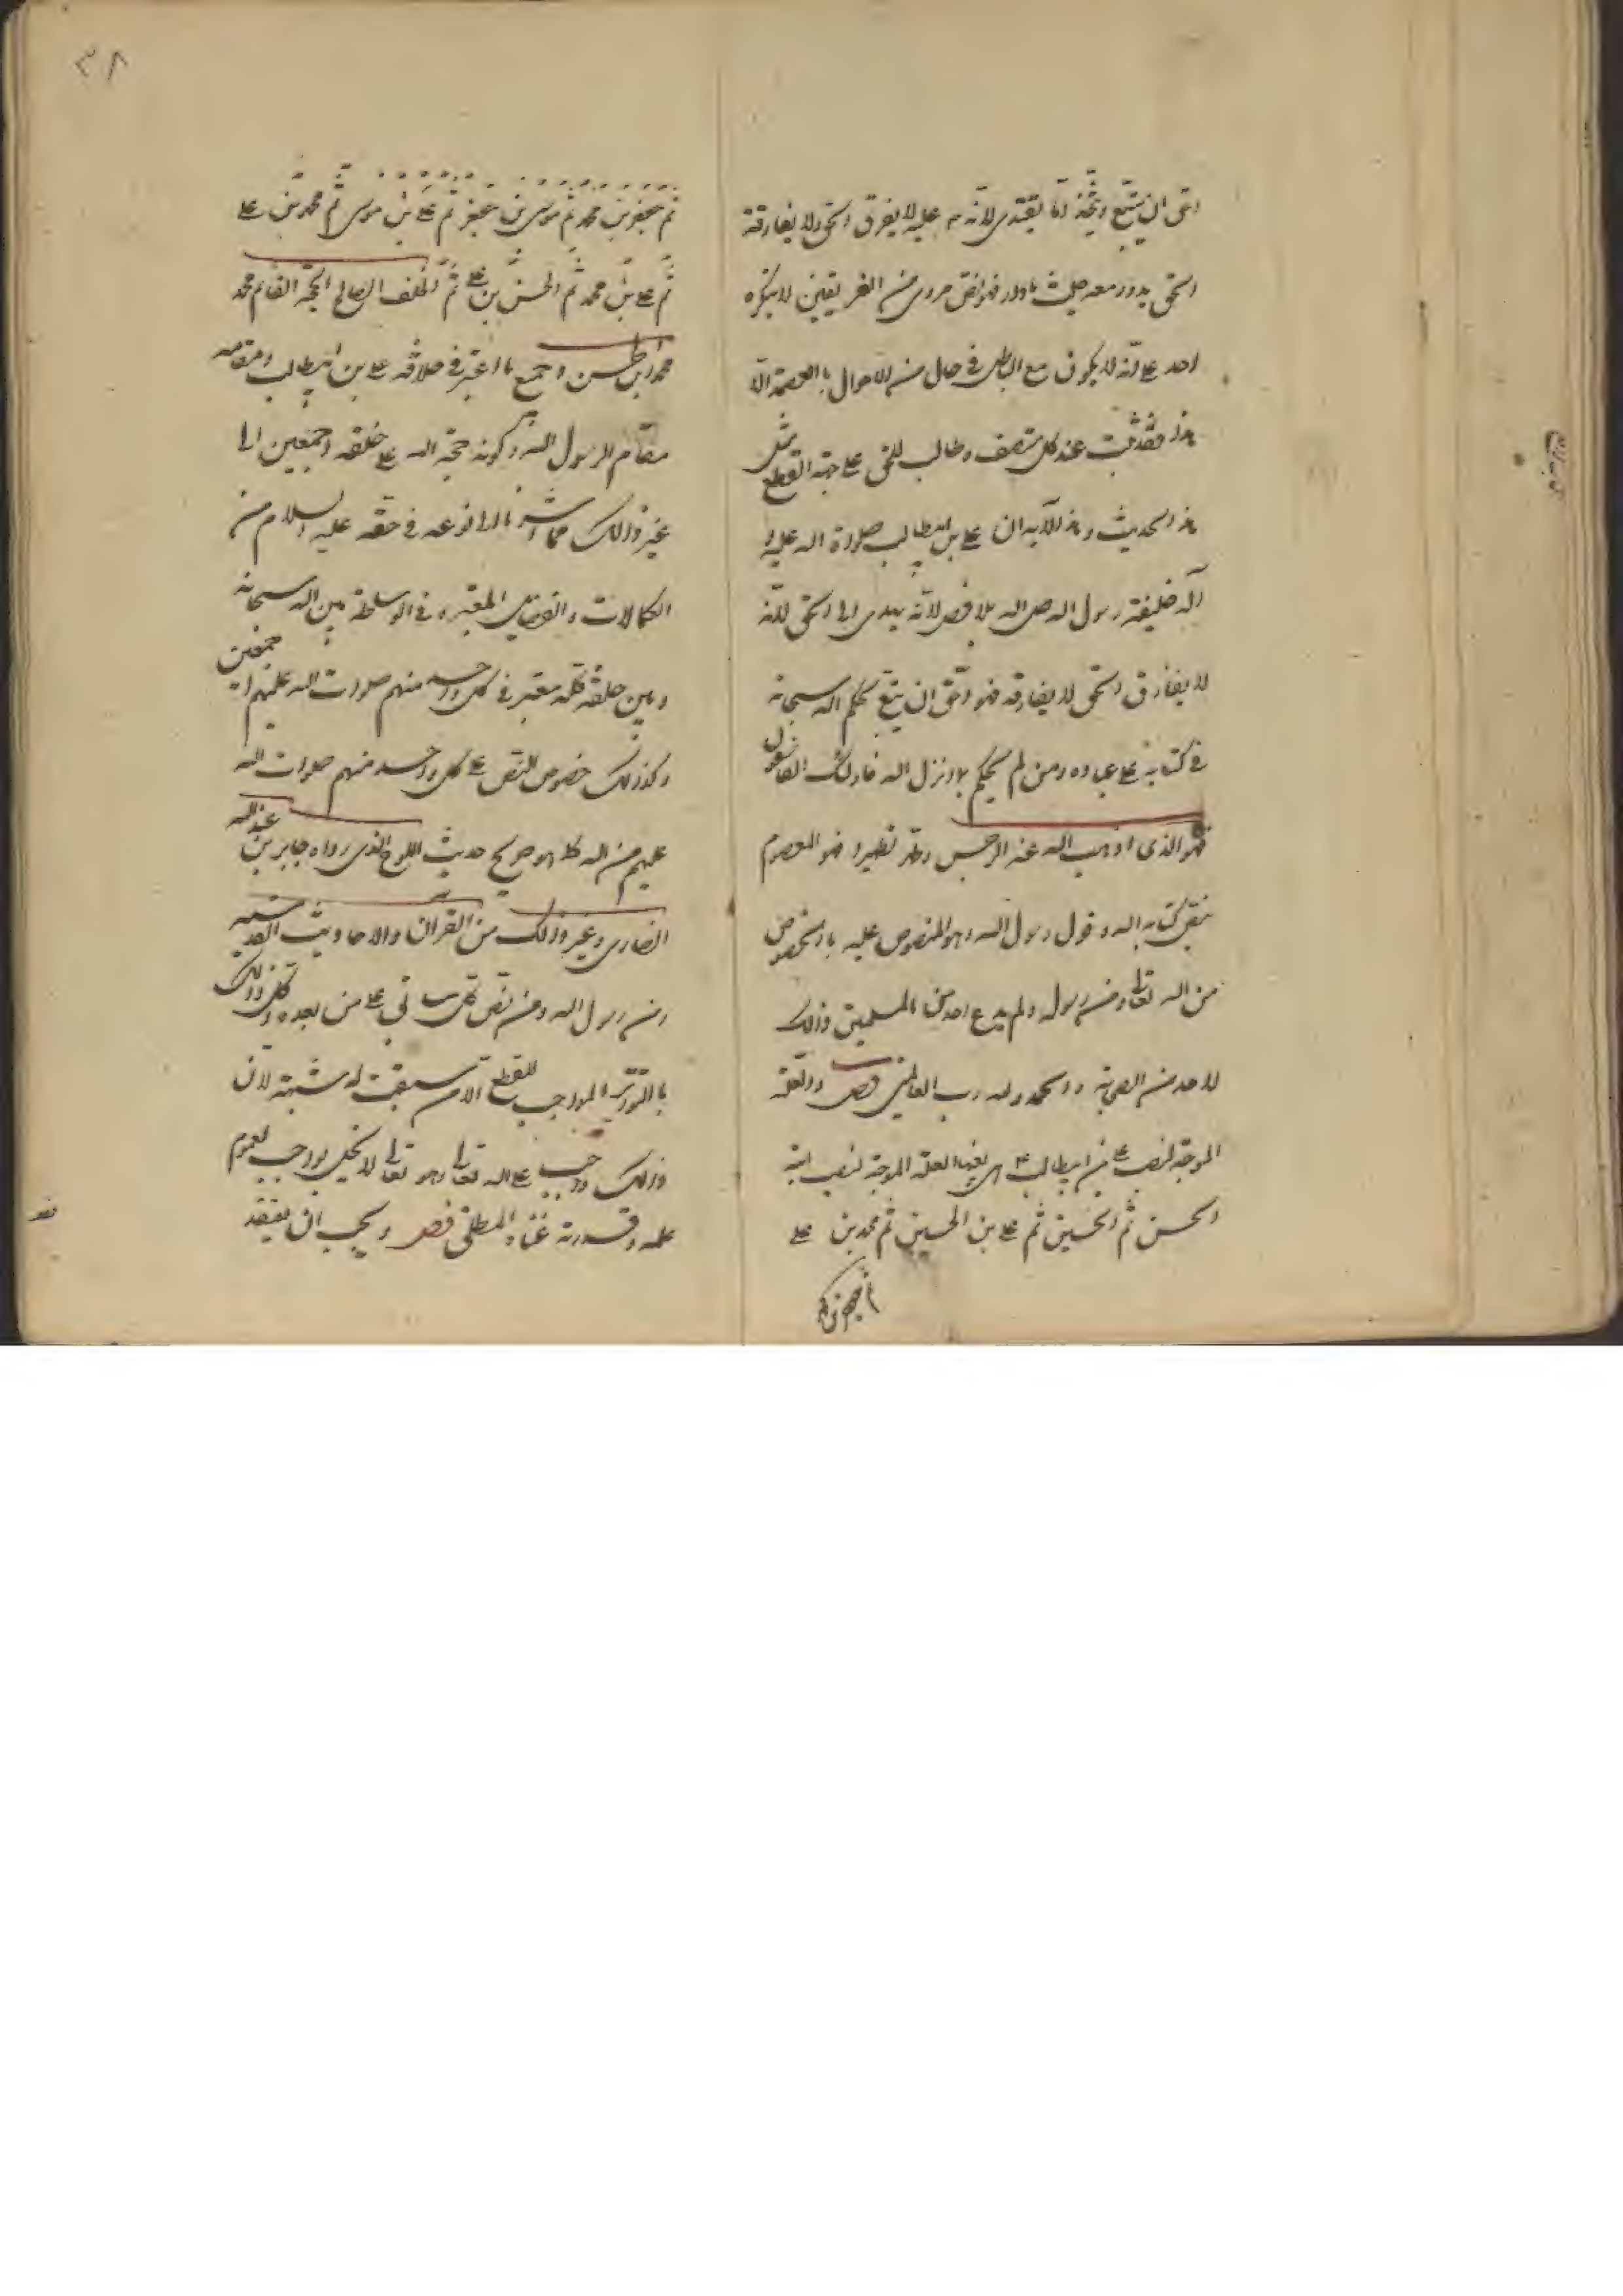 احق ان يتبع ويتخذ اما يقتدى لانه ٤ عليه لا يفرق الحق ولا يفارقه
الحق يدور معه حيث ما دار فهو نص مروى من الفريقين لا ينكره
احد على انه لا يكون مع الباطل في حال من الاحوال بالعصمة الا
هذا فقد ثبت عند كل منصف وطالب للحق على جهة القطع مثل
هذا الحديث وهذه الآية ان على بن ابيطالب صلواة اله عليه و
آله خليفة رسول اله صلى اله بلا فصل لانه يهدى الى الحق لانه
لا يفارق الحق لا يفارقه فهو احق ان يتبع بحكم اله سبحانه
في كتابه على عباده ومن لم يحكم بما انزل اله فاولئك الفاسقون
فهو الذى اذهب اله عنه الرجس وطهره تطهيرا فهو المعصوم
بنص كتاب اله وقول رسول اله وهو المنصوص عليه بالخصوص
من اله تعالى ومن رسوله ولم يدع احد من المسلمين ذلك
لاحد من الصحابة والحمد له رب العالمين فصل والعلة
الموجبة لنصب على بن ابيطالب ٤ هى بعينها العلة الموجبة لنصب ابنه
الحسن ثم الحسين ثم على بن الحسين ثم محمد بن على
ثم جعفر بن محمد
ثم جعفر بن محمد ثم موسى بن جعفر ثم على بن موسى ثم محمد بن على
ثم على بن محمد ثم الحسن بن على ثم الخلف الصالح الحجة القائم محمد
محمد ابن الحسن وجميع ما اعتبر في خلافة على بن ابيطالب ومقامه
مقام الرسول اله وكونه حجة اله على خلقه اجمعين الى
غير ذالك مما اشرنا الى نوعه في حقه عليه السلام من
الكمالات والفضايل المعتبره في الواسطة بين اله سبحانه
وبين خلقه كله معتبر في كل واحد منهم صلوات اله عليهم اجمعين
وكذلك خصوص النص على كل واحد منهم صلوات اله
عليهم من اله كما هو صريح حديث اللوح الذى رواه جابر بن عبداله
انصارى وغير ذلك من القران والاحاديث القدسيه
ومن رسول اله ومن نص كل سابق على من بعده وكل ذلك
بالتواتر الموجب للقطع الا من سبقت له شبهة لان
ذلك واجب على اله تعالى وهو تعالى لا يخل بواجب لعموم
علمه وقدرته غناه المطلق فصل ويجب ان يعتقد
٣٨